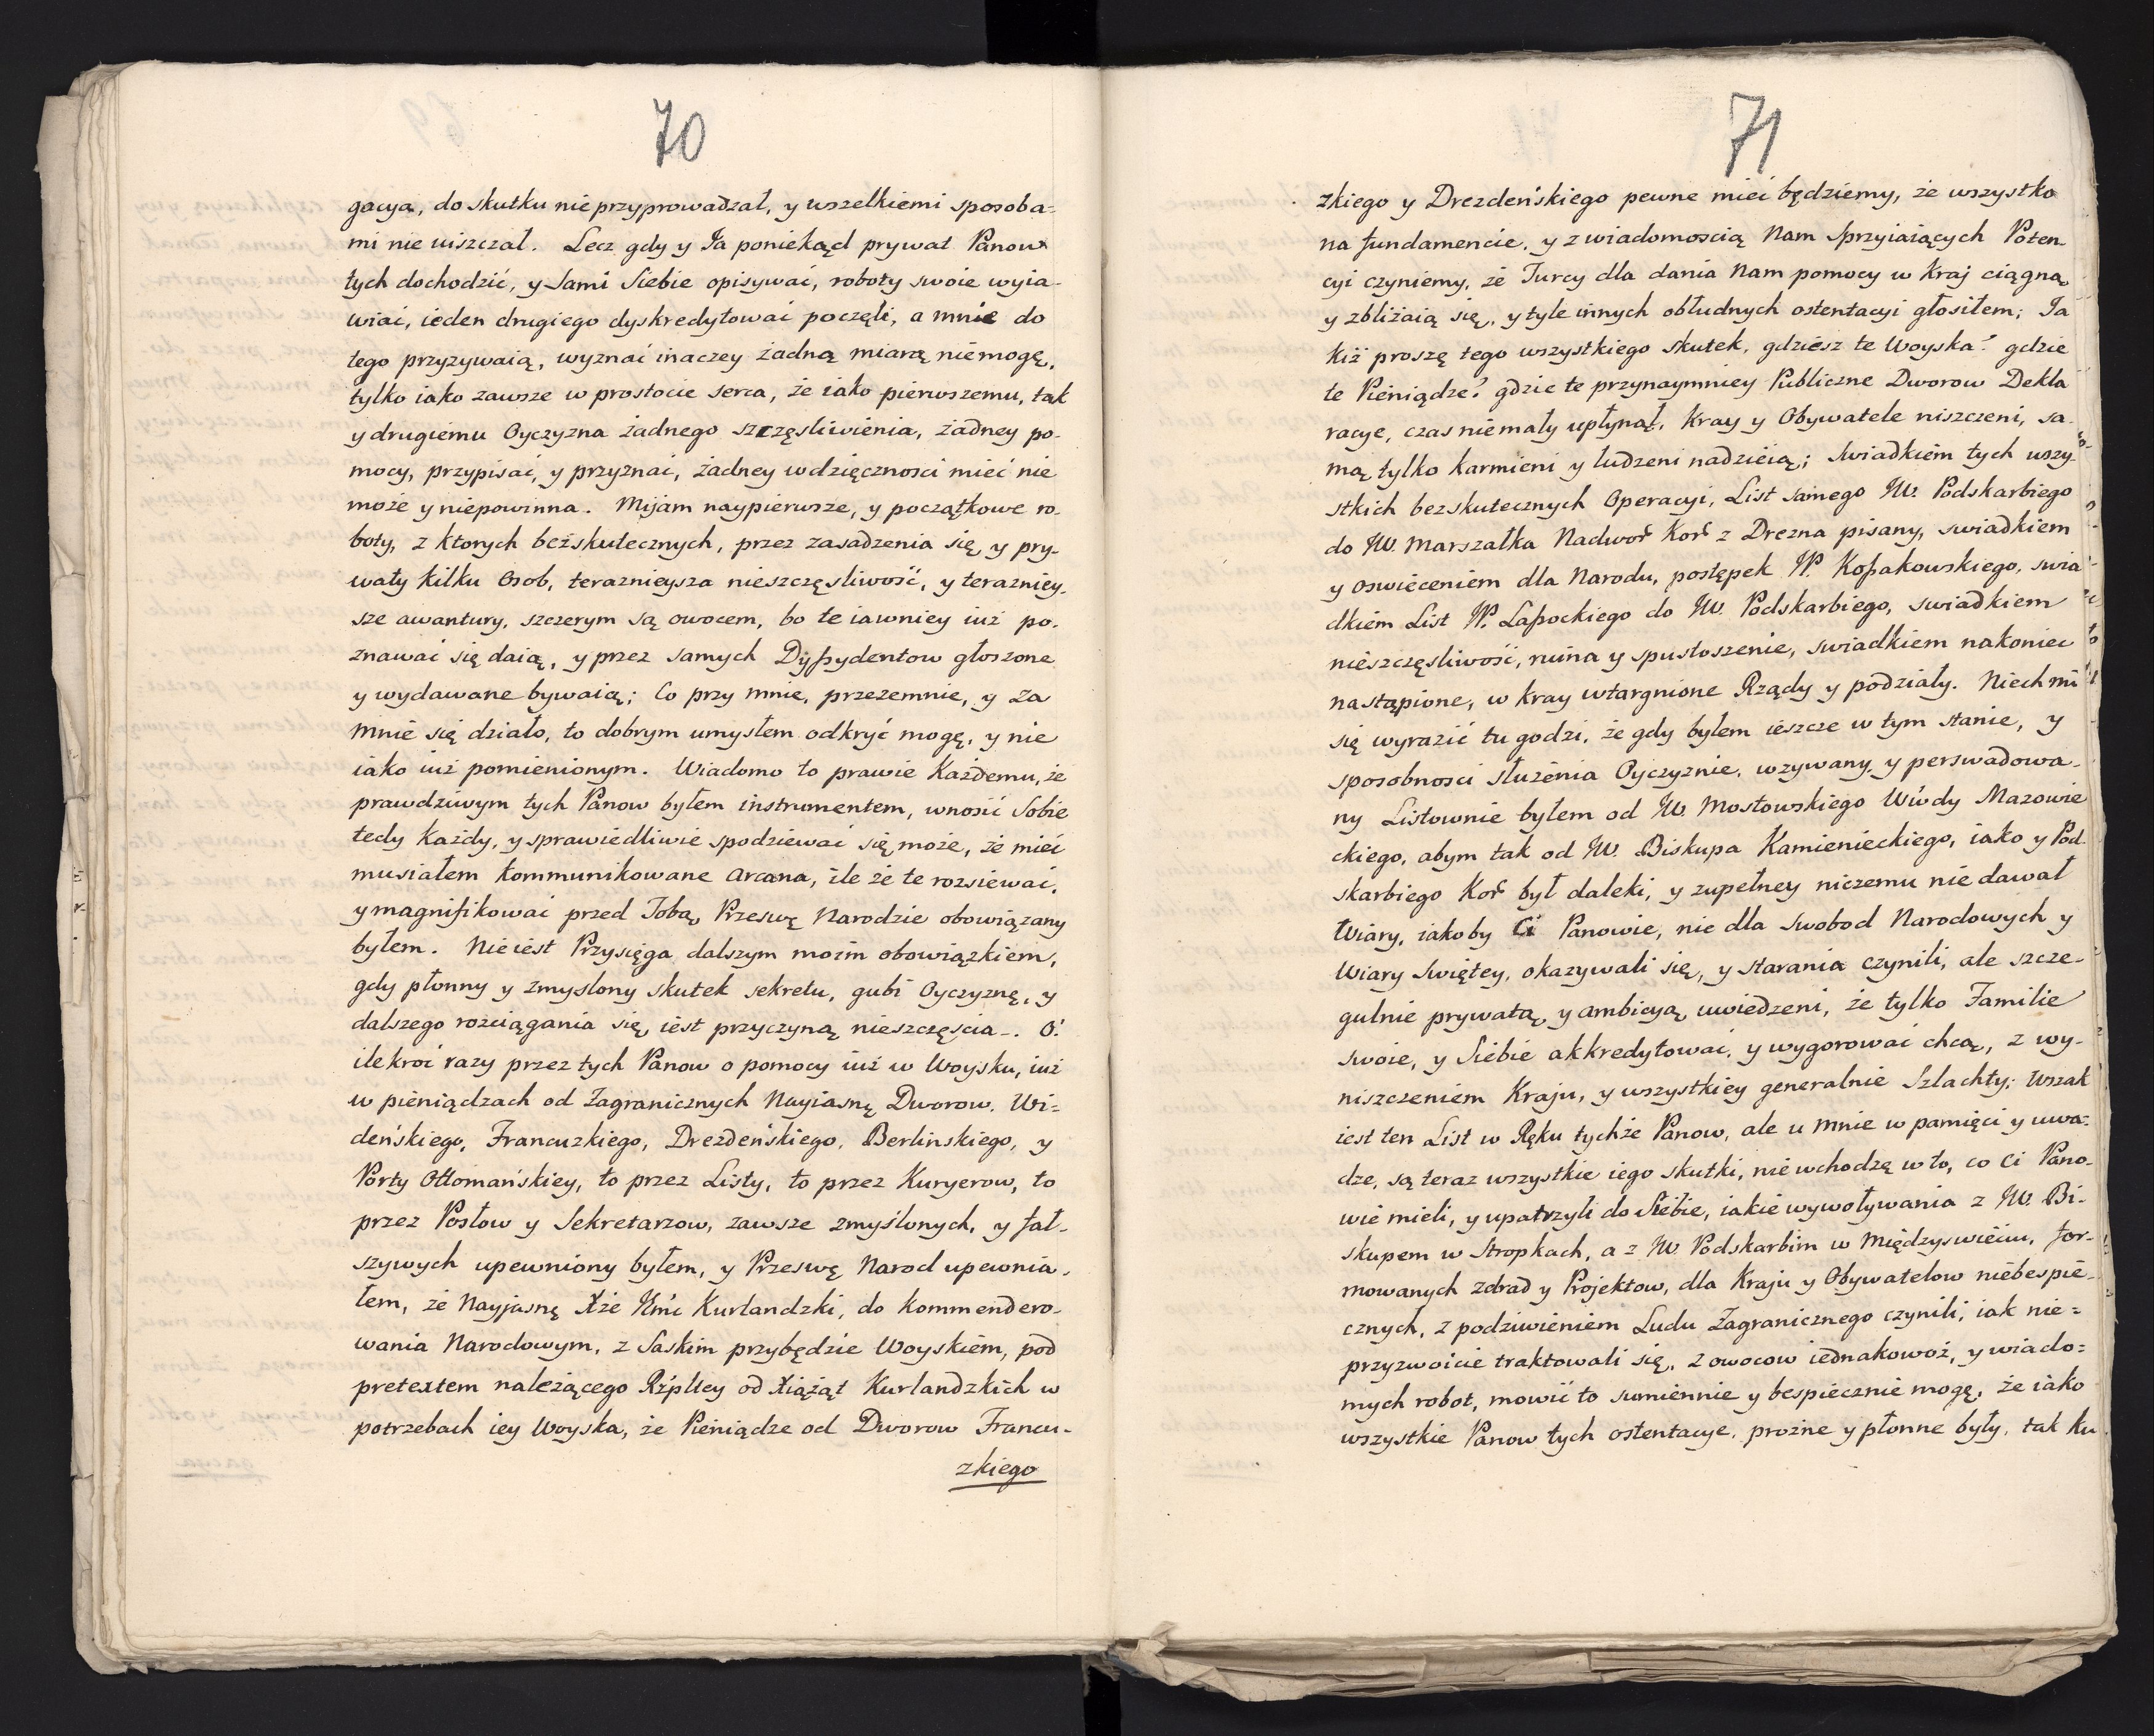 70
gacya, do skutku nie przyprowadzał, y wszelkiemi sposoba=
mi nie uiszczał. Lecz gdy y Ja poniekąd prywat Panow
tych dochodzić, y Sami Siebie opisywać, roboty swoie wyia-
wiać, ieden drugiego dyskredytować poczęli, a mnie do
tego przyzywaią, wyznać inaczey żadną miarą niemogę,
tylko iako zawsze w prostocie serca, że iako pierwszemu, tak
y drugiemu Oyczyzna żadnego szczęsliwienia, żadney po-
mocy, przypisać, y przyznać, żadney wdzięcznosci mieć nie
może y niepowinna. Mijam naypierwsze, y początkowe ro-
boty, z ktorych bezskutecznych, przez zasadzenia się, y pry-
waty kilku Osob, teraznieysza nieszczęsliwość, y terazniey-
sze awantury, szczerym są owocem, bo te iawniey iuż po-
znawać się daią, y przez samych Dyssydentow głoszone
y wydawane bywaią; Co przy mnie, przezemnie, y za
mnie się działo, to dobrym umysłem odkryć mogę, y nie
iako iuż pomienionym. Wiadomo to prawie Każdemu, że
prawdziwym tych Panow byłem instrumentem, wnosić Sobie
tedy każdy, y sprawiedliwie spodziewać się może, że mieć
musiałem kommunikowane arcana, ile że te rozsiewać,
y magnifikować przed Tobą, Przeswę Narodzie obowiązany
byłem. Nieiest Przysięga dalszym moim obowiązkiem,
gdy płonny y zmyslony skutek sekretu, gubi Oyczyznę, y
dalszego rozciągania się, iest przyczyną nieszczęścia-. O!
ilekroć razy przez tych Panow o pomocy iuż w Woysku, iuż
w pieniądzach od Zagranicznych Nayiasnę Dworow, Wi=
deńskiego, Francuzkiego, Drezdeńskiego, Berlinskiego, y
Porty Ottomańskiey, to przez Listy, to przez Kuryerow, to
przez Posłow y Sekretarzow, zawsze zmyślonych, y fał-
szywych upewniony byłem, y Przeswę Narod upewnia-
łem, że Nayjasnę Xże Jmć Kurlandzki, do kommendero-
wania Narodowym, z Saskim przybędzie Woyskiem, pod
pretextem należącego Rzpltey od Xiążąt Kurlandzkich w
potrzebach iey Woyska, że Pieniądze od Dworow Francu-
zkiego
71
zkiego y Drezdeńskiego pewne mieć będziemy, że wszystko
na fundamencie, y z wiadomoscią Nam Sprzyiaiących Poten
cyi czyniemy, że Turcy dla dania Nam pomocy w Kraj ciągną,
y zbliżaią się, y tyle innych obłudnych ostentacyi głosiłem; Ja
kiż proszę tego wszystkiego skutek, gdziesz te Woyska? gdzie
te Pieniądze? gdzie te przynaymniey Publiczne Dworow Dekla
racye, czas niemały upłynął, Kray y Obywatele niszczeni, sa-
mą tylko karmieni y łudzeni nadzieią; Swiadkiem tych wszy-
stkich bezskutecznych Operacyi, List samego JW. Podskarbiego
do JW. Marszałka Nadwor Kor z Drezna pisany, swiadkiem
y oswieceniem dla Narodu, postępek W. Kossakowskiego, swia
dkiem List W. Łassockiego do JW. Podskarbiego, swiadkiem
nieszczęsliwość, ruina y spustoszenie, swiadkiem nakoniec
nastąpione, w kray wtargnione Rządy y podziały. Niech mi
się wyrazić tu godzi, że gdy byłem ieszcze w tym stanie, y
sposobnosci służenia Oyczyznie, wzywany y perswadowa-
ny Listownie byłem od JW. Mostowskiego Wwdy Mazowie
ckiego, abym tak od JW. Biskupa Kamienieckiego, iako y Pod-
skarbiego Kor był daleki, y zupełney niczemu nie dawał
Wiary, iakoby Ci Panowie, nie dla Swobod Narodowych y
Wiary Swiętey, okazywali się, y starania czynili, ale szcze-
gulnie prywatą, y ambicyą uwiedzeni, że tylko Familie
swoie, y Siebie akkredytować, y wygorować chcą, z wy-
niszczeniem Kraju, y wszystkiey generalnie Szlachty; Wszak
iest ten List w Ręku tychże Panow, ale u mnie w pamięci y uwa=
dze, są teraz wszystkie iego skutki, nie wchodzę w to, co Ci Pano-
wie mieli, y upatrzyli do Siebie, iakie wywoływania z JW. Bi-
skupem w Stropkach, a z JW. Podskarbim w Międzyswieciu, for-
mowanych zdrad y Projektow, dla Kraju y Obywatelow niebespie-
cznych, z podziwieniem Ludu Zagranicznego czynili, iak nie=
przyzwoicie traktowali się, z owocow iednakowoż, y wiado=
mych robot, mowić to sumiennie y bespiecznie mogę, że iako
wszystkie Panow tych ostentacye, prożne y płonne były, tak ku